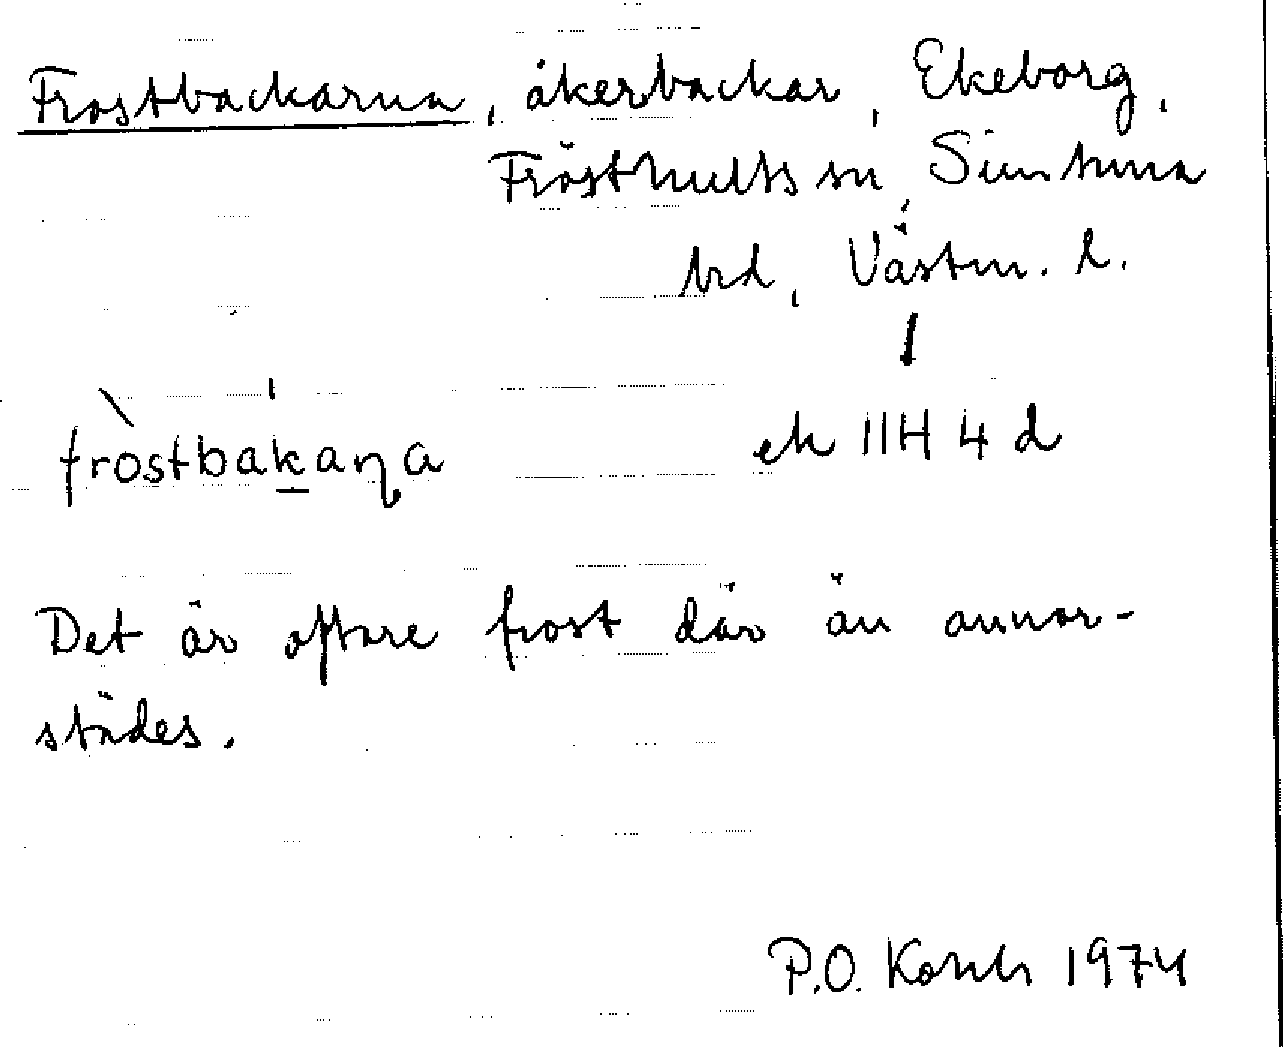 Frostbackarna, åkerbackar, Ekeborg,
Frösthults sn, Simtuna
hd, Västm. l.
fròstbakaṇa
ek 11H 4 d
Det är oftare frost där än annor-
städes.
P.O. 1974